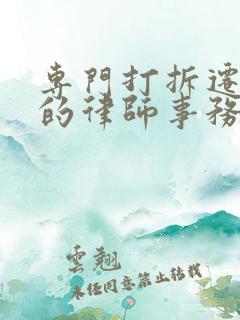 專門打拆遷
的律師事務
雲翹
未經同意禁止轉載